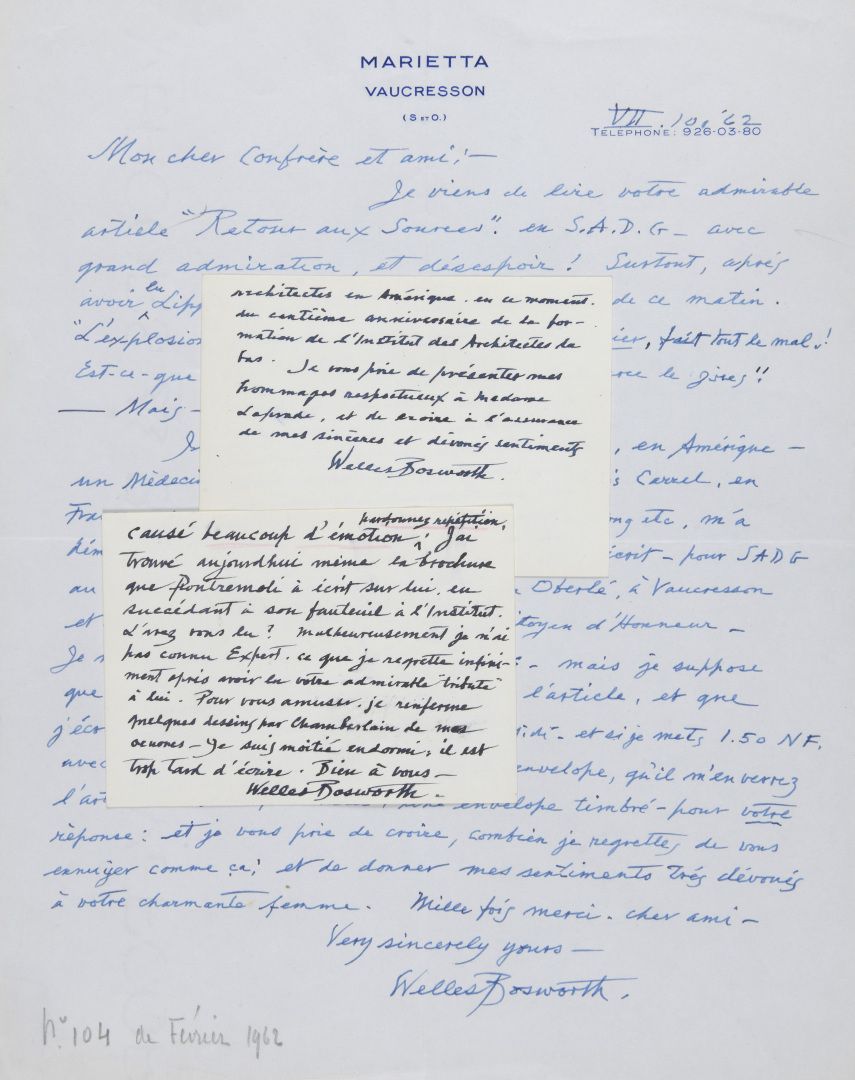 MARIETTA
VAUCRESSON
(S ET O.)
VII. 10, '62
TÉLÉPHONE: 926-03-80
Mon cher Confrère et ami; —
Je viens de lire votre admirable
article "Retour aux Sources". en S.A.D.G — avec
grand admiration, et désespoir! Surtout, après
avoir lu Lipp
de ce matin.
"L'explosion
fait tout le mal.!
Est-ce-que
— Mais —
, en Amérique —
un Médecin
Carrel, en
Fra
etc, m'a
écrit — pour SADG
au
Oberlé, à Vaucresson
et
toyen d'Honneur —
Je
— mais je suppose
que
l'article, et que
j'écr
di — et si je mets 1.50 NF.
avec
envelope, qu'il m'enverrez
l'art
envelope timbré — pour votre
réponse: et je vous prie de croire, combien je regrettes de vous
ennuyer comme ça; et de donner mes sentiments trés dévoués
à votre charmante femme. Mille fois merci. cher ami —
Very sincerely yours —
Welles Bosworth.
No. 104 de Février 1962
architectes en Amérique. en ce moment.
du centième anniversaire de la for-
mation de l'Institut des Architectes de
bas. Je vous prie de présenter mes
hommages respectueux à Madame
Laprade, et de croire à l'assurance
de mes sincères et dévoués sentiments
Welles Bosworth.
pardonnez repétition,
causé beaucoup d'émotion; J'ai
trouvé aujourdhui même la brochure
que Pontremoli à écrit sur lui, en
succédant à son fauteuil à l'Institut.
L'avez vous lu? Malheureusement je n'ai
pas connu Expert. ce que je regrette infini-
ment après avoir lu votre admirable "tribute"
à lui. Pour vous amuser, je renferme
quelques dessins par Chamberlain de mes
oeuvres — Je suis moitié endormi, il est
trop tard d'écrire. Bien à vous —
Welles Bosworth.